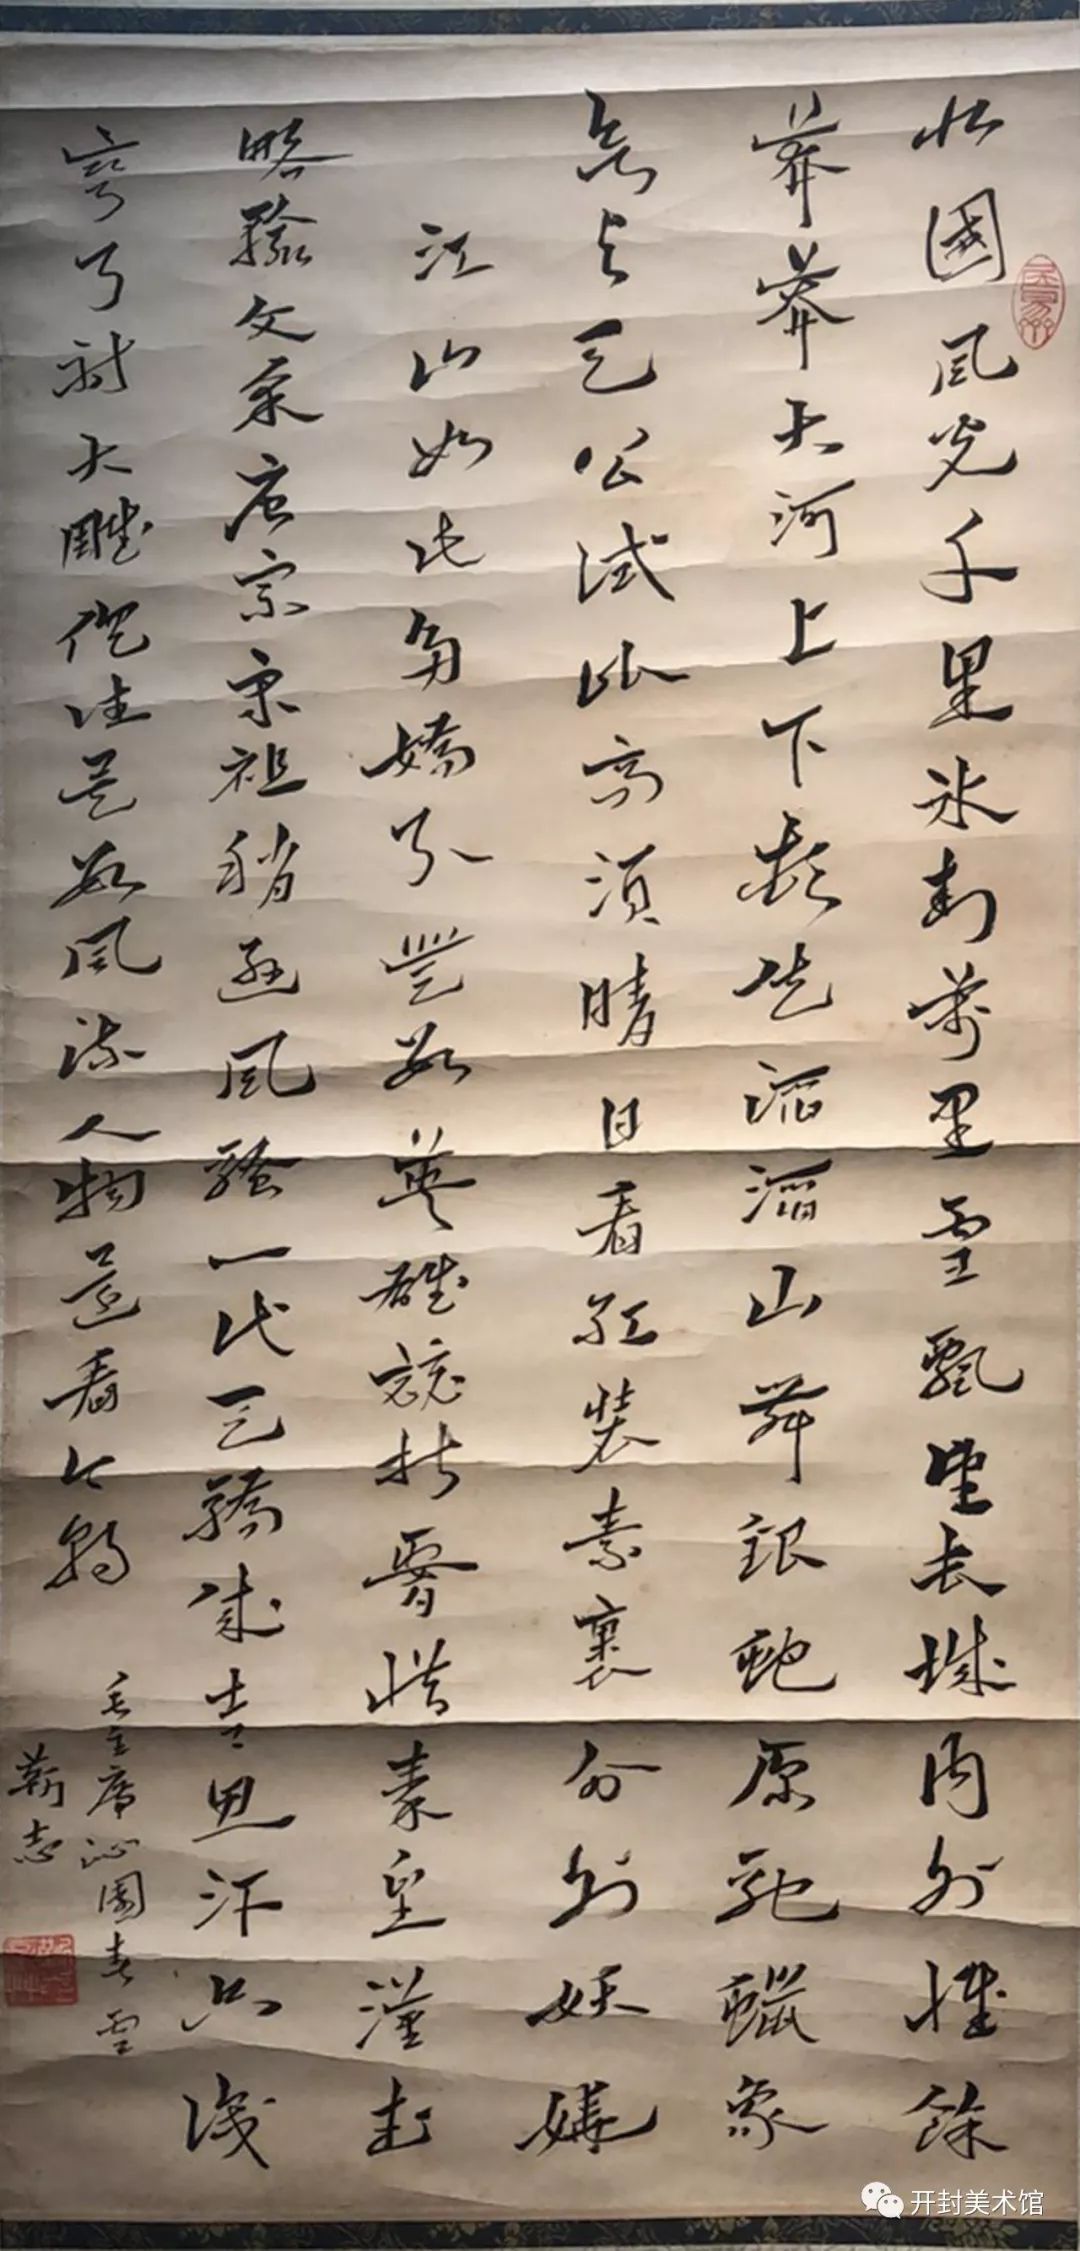 北國風光千里冰封萬里雪飄望長城內外惟餘
莽莽大河上下頓失滔滔山舞銀蛇原馳蠟象
欲與天公試比高須晴日看紅裝素裹分外妖嬈
江山如此多嬌引無數英雄競折腰惜秦皇漢武
略輸文采唐宗宋祖稍遜風騷一代天驕成吉思汗只識
彎弓射大雕俱往矣數風流人物還看今朝
毛主席沁園春雪
靳志
开封美术馆